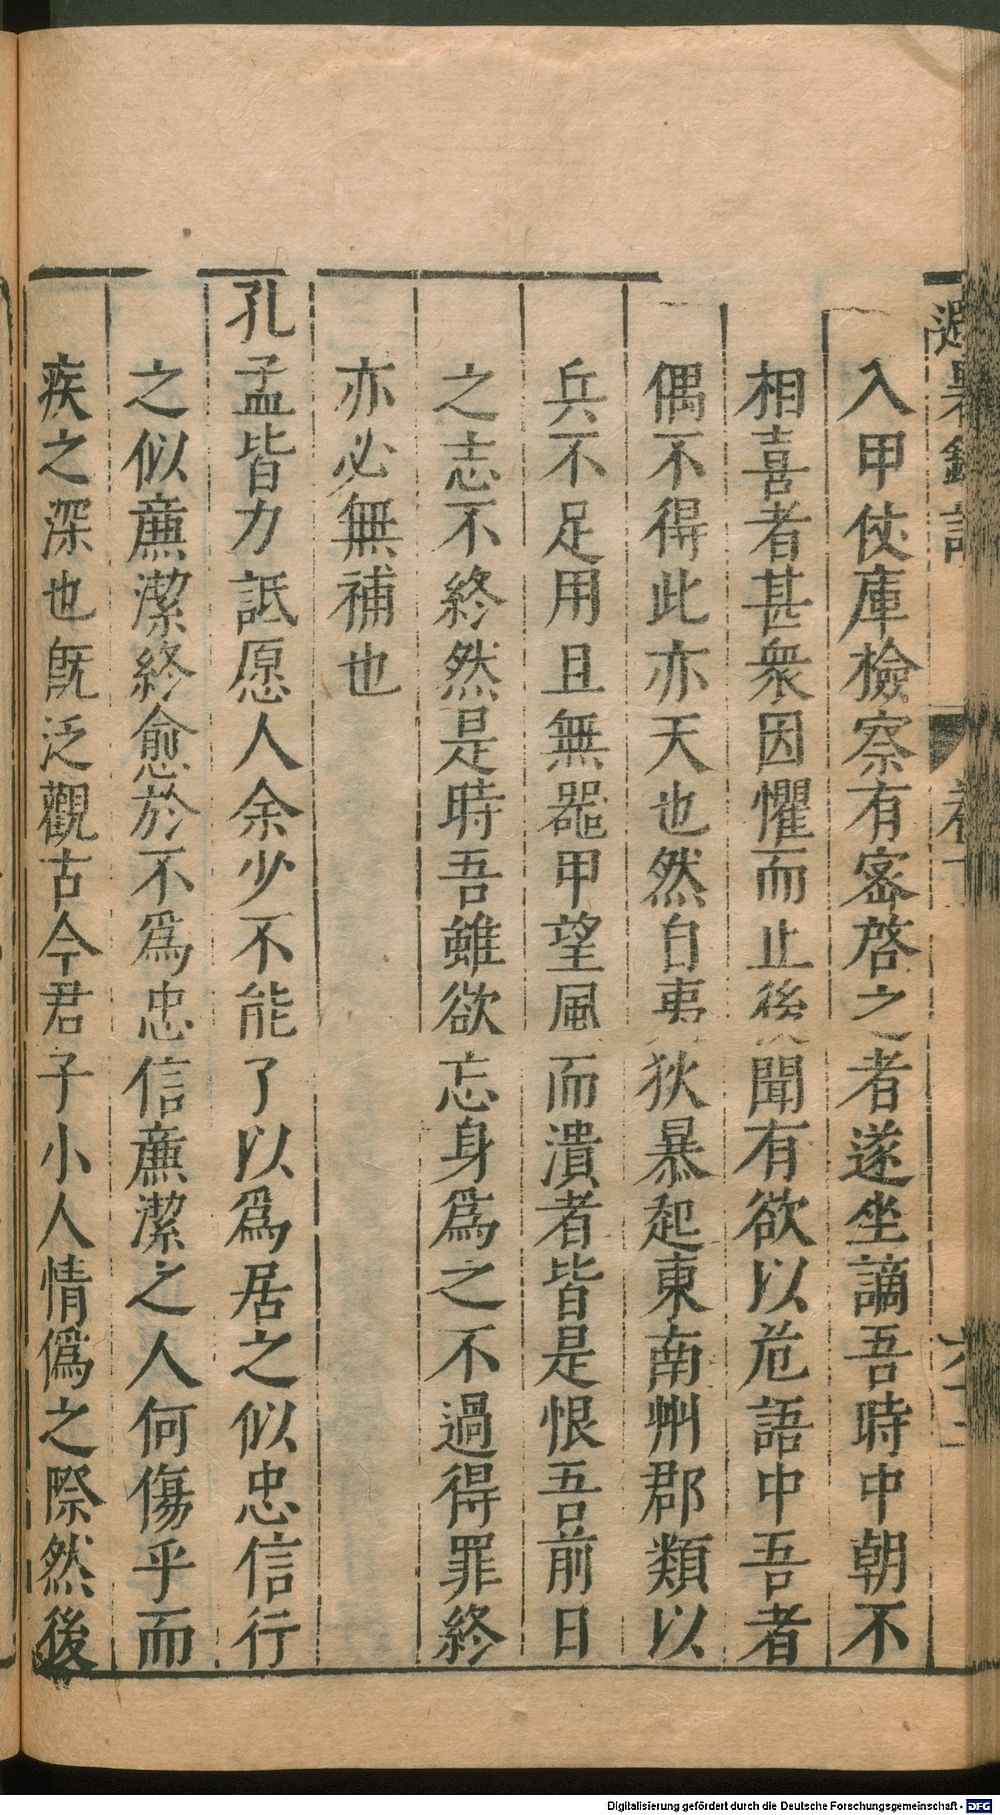 避暑錄話
卷下
入甲仗庫檢察有密啓之者遂坐謫吾時中朝不
相喜者甚衆因懼而止後聞有欲以危語中吾者
偶不得此亦天也然自夷狄暴起東南州郡類以
兵不足用且無器甲望風而潰者皆是恨吾前日
之志不終然是時吾雖欲忘身爲之不過得罪終
亦必無補也
孔孟皆力詆愿人余少不能了以爲居之似忠信行
之似亷潔終愈於不爲忠信亷潔之人何傷乎而
疾之深也旣泛觀古今君子小人情僞之際然後
Digitalisierung gefördert durch die Deutsche Forschungsgemeinschaft - DFG